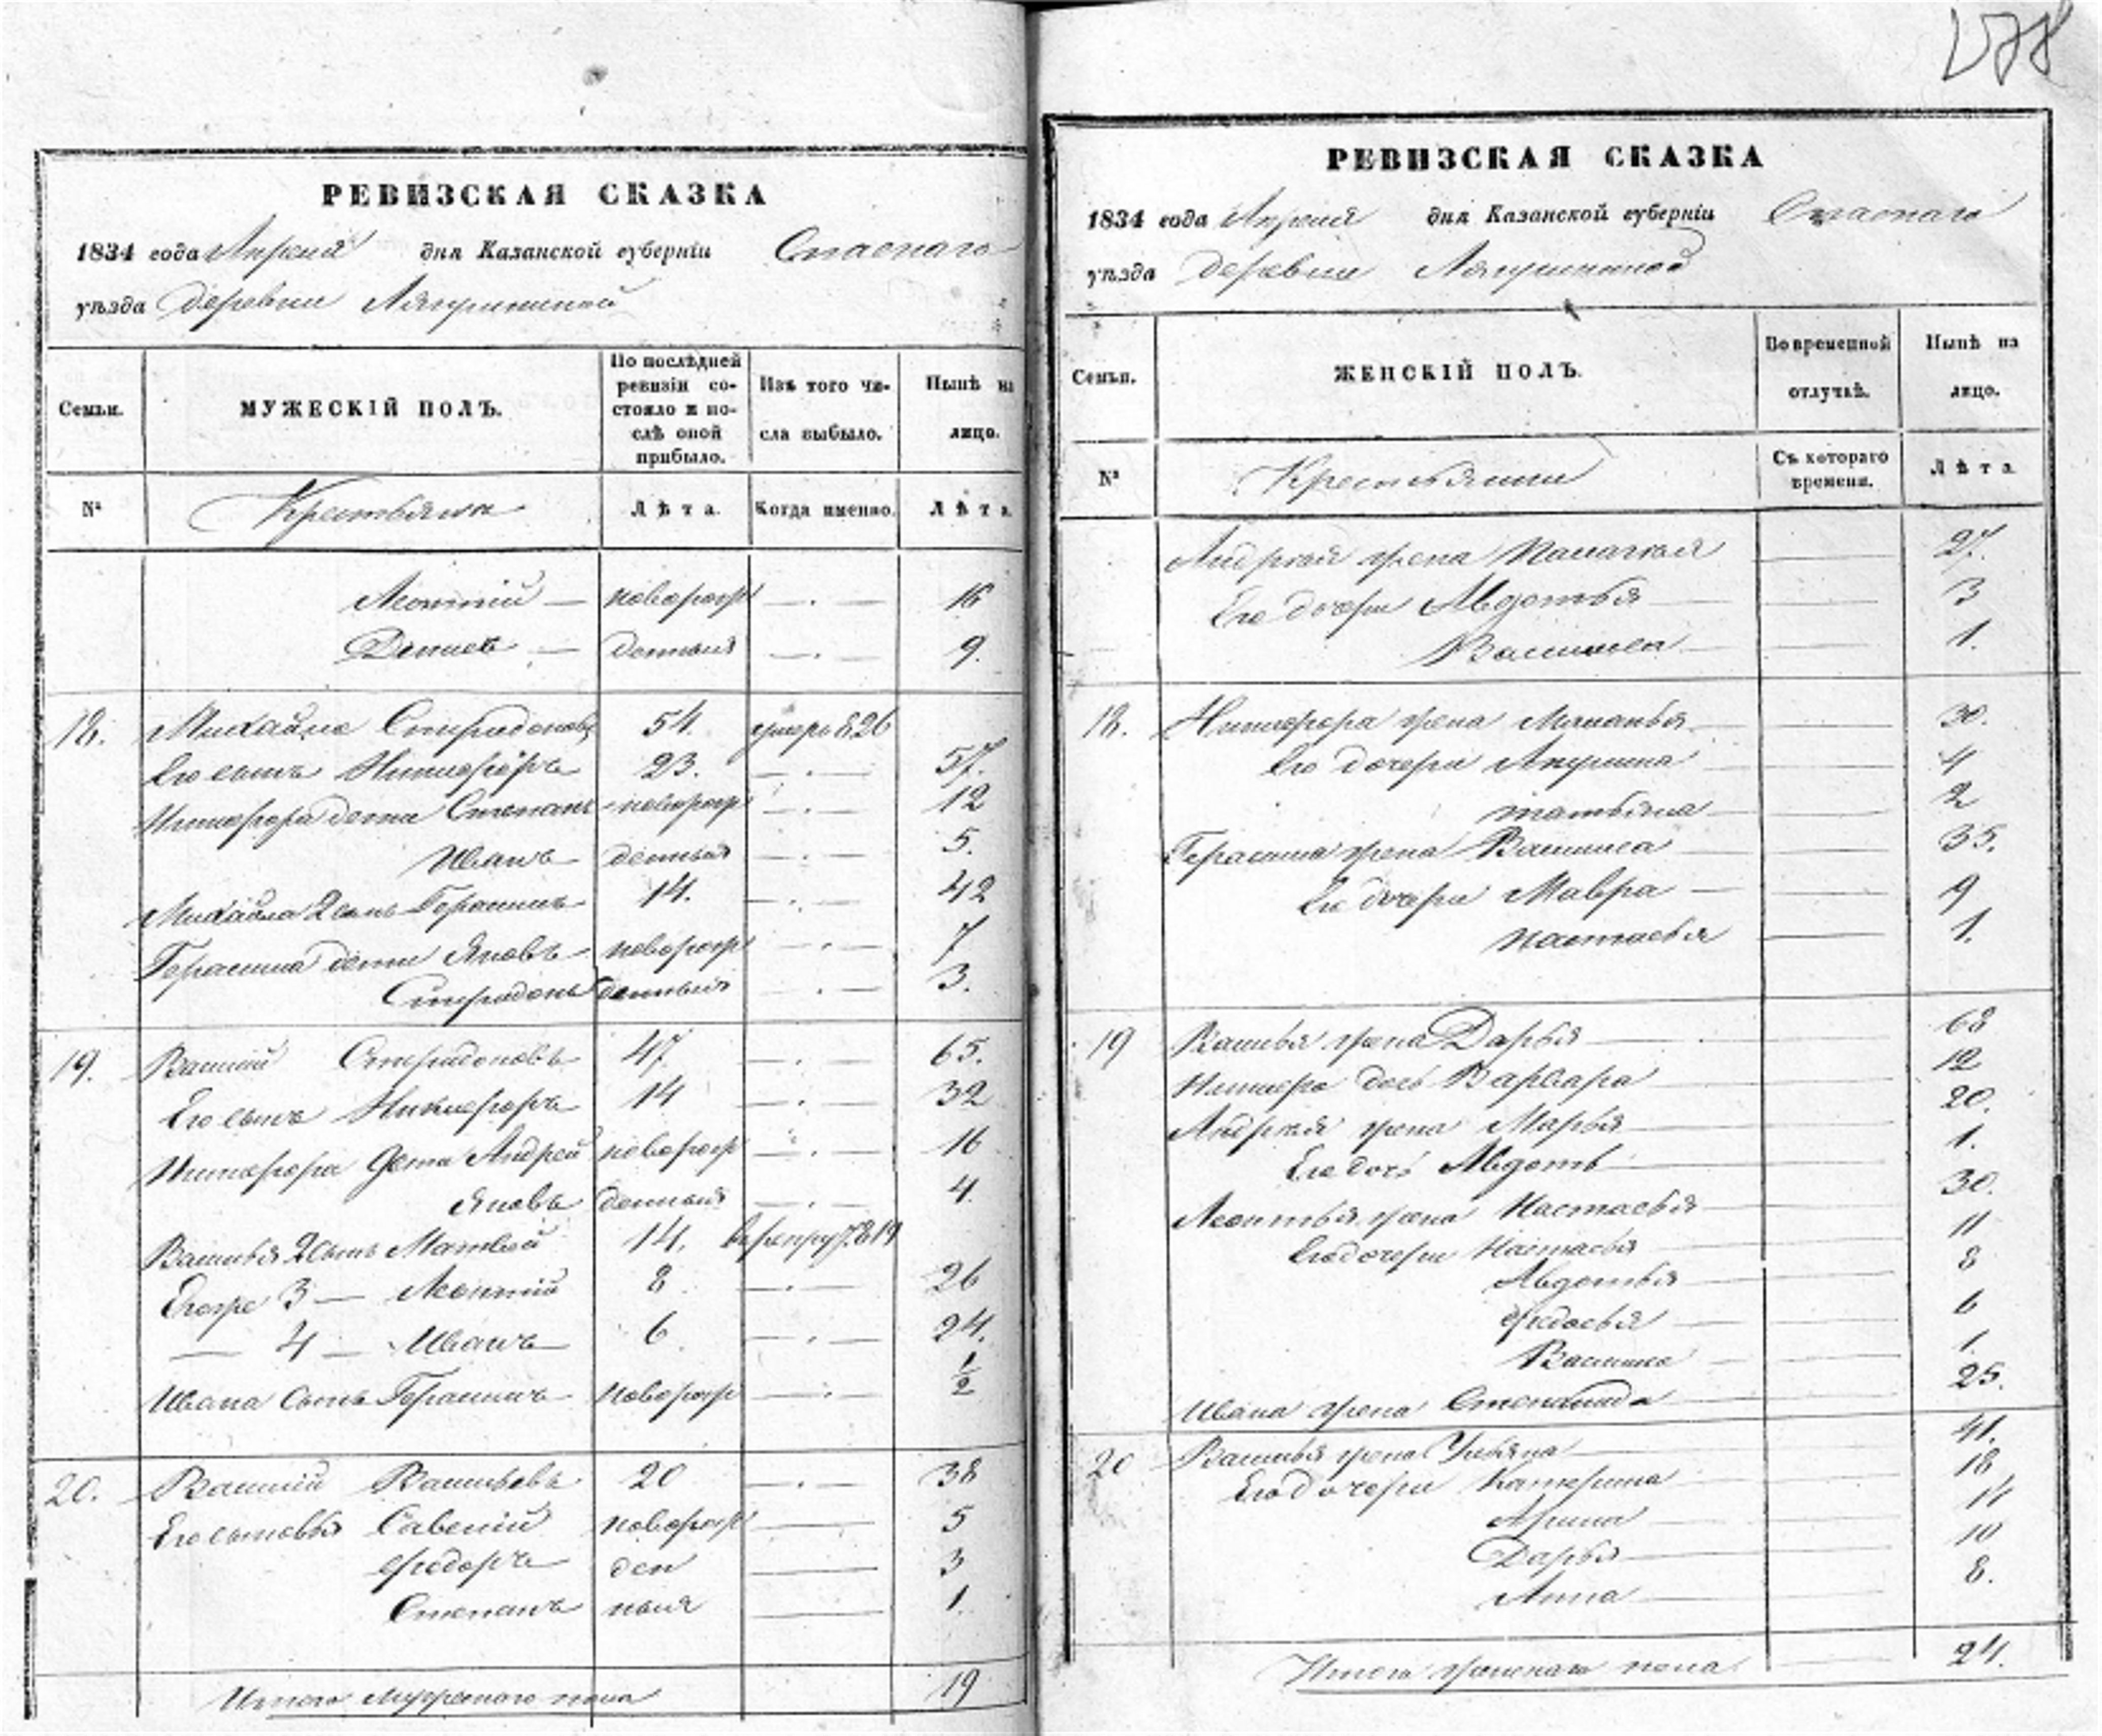 РЕВИЗСКАЯ СКАЗКА
1834 года Апреля дня Казанской губерніи Спаскаго
уѣзда деревни
Семьи.
МУЖЕСКІЙ ПОЛЪ.
По послѣдней ревизіи состояло и послѣ оной прибыло.
Изъ того числа выбыло.
Нынѣ на лицо.
№
Крестьяня
Лѣта.
Когда именно.
Лѣта.
Леонтий — новорож — 16
Денисъ — денныя — 9.
18. Михайла Спиридоновъ 54. умеръ 826
Его сынъ Никифоръ 23. — 57.
Никифора дети Степанъ новорож — 12
Иванъ денныя — 5.
Михайла 2 сынъ Герасимъ 14. — 42
Герасима дети Яковъ новорож — 7
Спиридонъ денныя — 3.
19. Василий Спиридоновъ 47 — 65.
Его сынъ Никифоръ 14 — 32
Никифора дети Андрей новорож — 16
Яковъ денныя — 4.
Василья 2 сынъ Матвей 14. 819
Егоже 3 — Леонтий 8 — 26
— 4 — Иванъ 6 — 24.
Ивана сынъ Герасимъ новорож — 1/2
20. Василий Васильевъ 20 — 38
Его сыновья Савелий новорож — 5
Федоръ ден — 3
Степанъ ныя — 1.
Итого мужескаго пола 19
РЕВИЗСКАЯ СКАЗКА
1834 года Апреля дня Казанской губерніи Спаскаго
уѣзда деревни
Семьи.
ЖЕНСКІЙ ПОЛЪ.
Во временной отлучкѣ.
Нынѣ на лицо.
№
Съ котораго времени.
Лѣта
Андрея жена Палагея — 27.
Его дочери Авдотья — 3
Василиса — 1.
18. Никифора жена Маланья — 30.
Его дочери Акулина — 4
Татьяна — 2
Герасима жена Василиса — 35.
Его дочери Мавра — 9
Настасья — 1.
19 Василья жена Дарья — 68
Никифора дочь Варвара — 12
Андрея жена Марья — 20.
Его дочь Авдоть — 1.
Леонтья жена Настасья — 30.
Его дочери Настасья — 11
Авдотья — 8
Федосья — 6
Василиса — 1.
Ивана жена Степанида — 25.
20 Василья жена Ульяна — 41.
Его дочери Катерина — 18
Арина — 14
Дарья — 10
Анна — 8.
Итого женскаго пола 24.